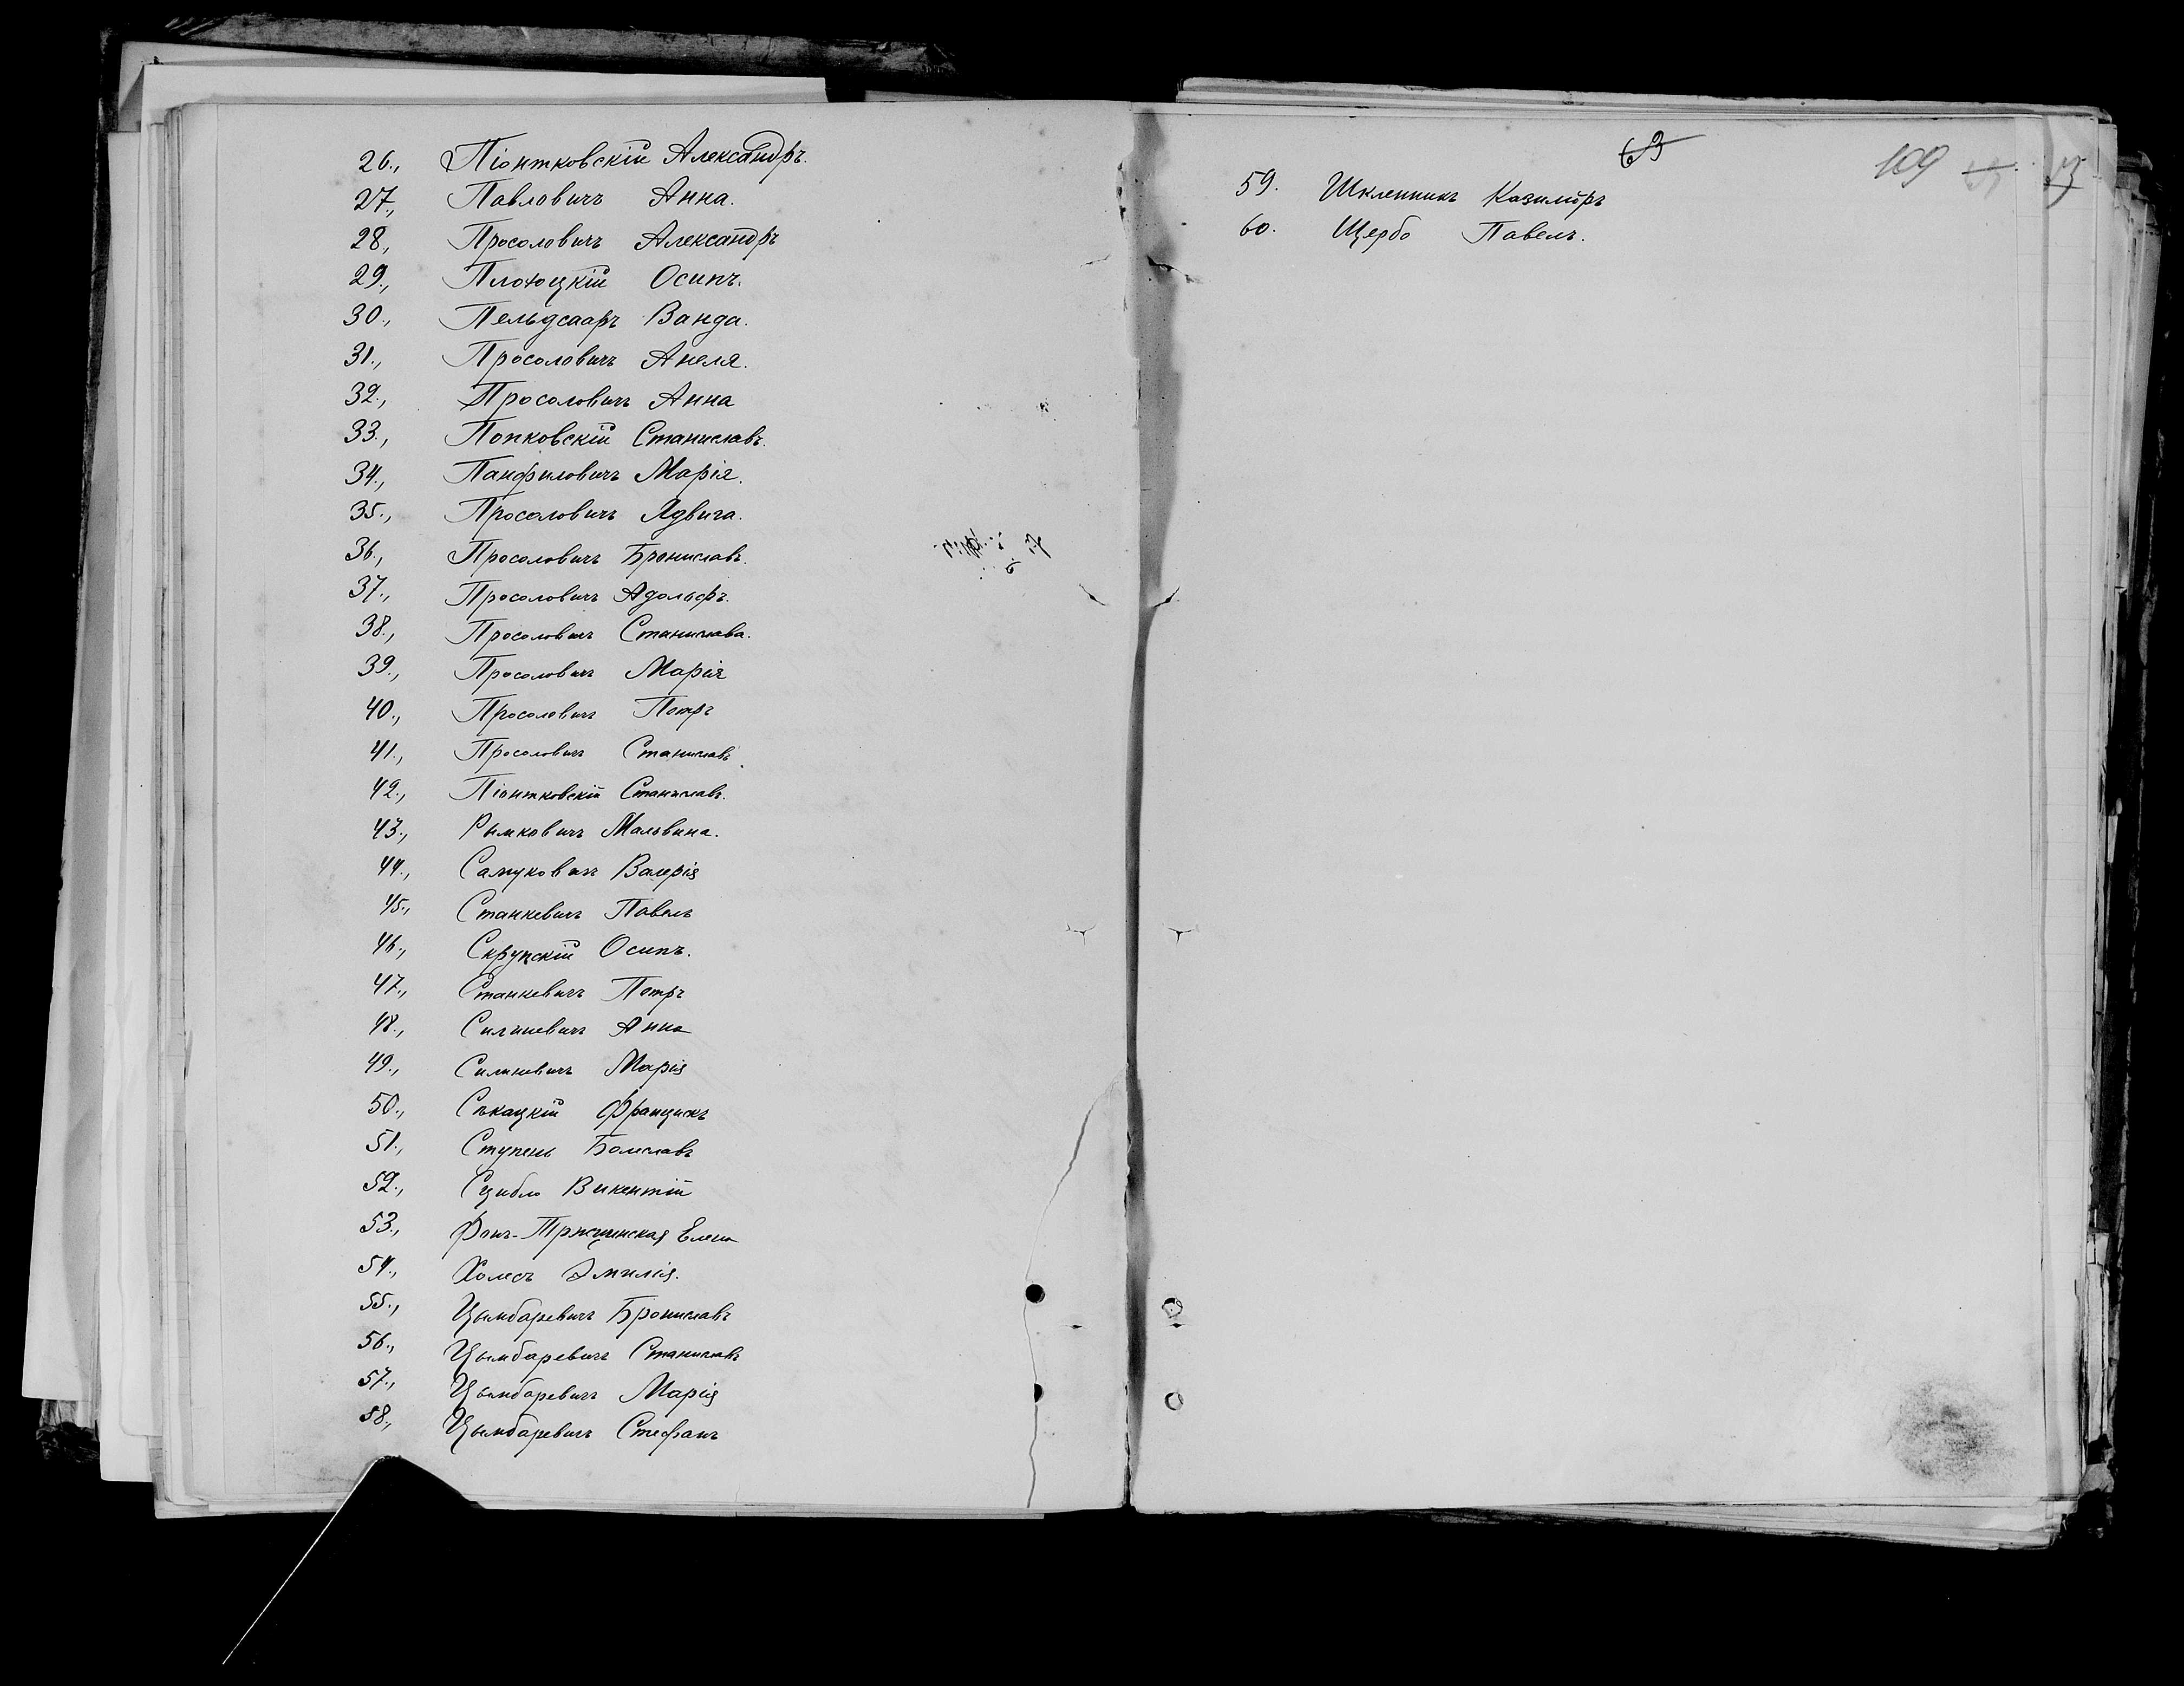 26., Піонтковскій Александръ.
27., Павловичъ Анна.
28., Просоловичъ Александръ
29., Плотоцкій Осипъ.
30., Пельдсааръ Ванда.
31., Просоловичъ Анеля.
32., Просоловичъ Анна
33., Попковскій Станиславъ.
34., Панфиловичъ Марія.
35., Просоловичъ Ядвига.
36., Просоловичъ Брониславъ.
37., Просоловичъ Адольфъ.
38., Просоловичъ Станислава.
39., Просоловичъ Марія
40., Просоловичъ Петръ
41., Просоловичъ Станиславъ
42., Піонтковскій Станиславъ.
43., Рымковичъ Мальвина.
44., Самуковичъ Валерія
45., Станкевичъ Павелъ
46., Скрупскій Осипъ.
47., Станкевичъ Петръ
48., Силиневичъ Анна
49., Силиневичъ Марія
50., Съкацкій Францискъ
51., Ступень Болеславъ
52., Сцибло Викентій
53., Фонъ-Тржцинская Елена
54., Холесъ Эмилія.
55., Цымбаревичъ Брониславъ
56., Цымбаревичъ Станиславъ
57., Цымбаревичъ Марія
58., Цымбаревичъ Стефанъ
63
109
59. Шклепникъ Казиміръ
60. Щербо Павелъ.